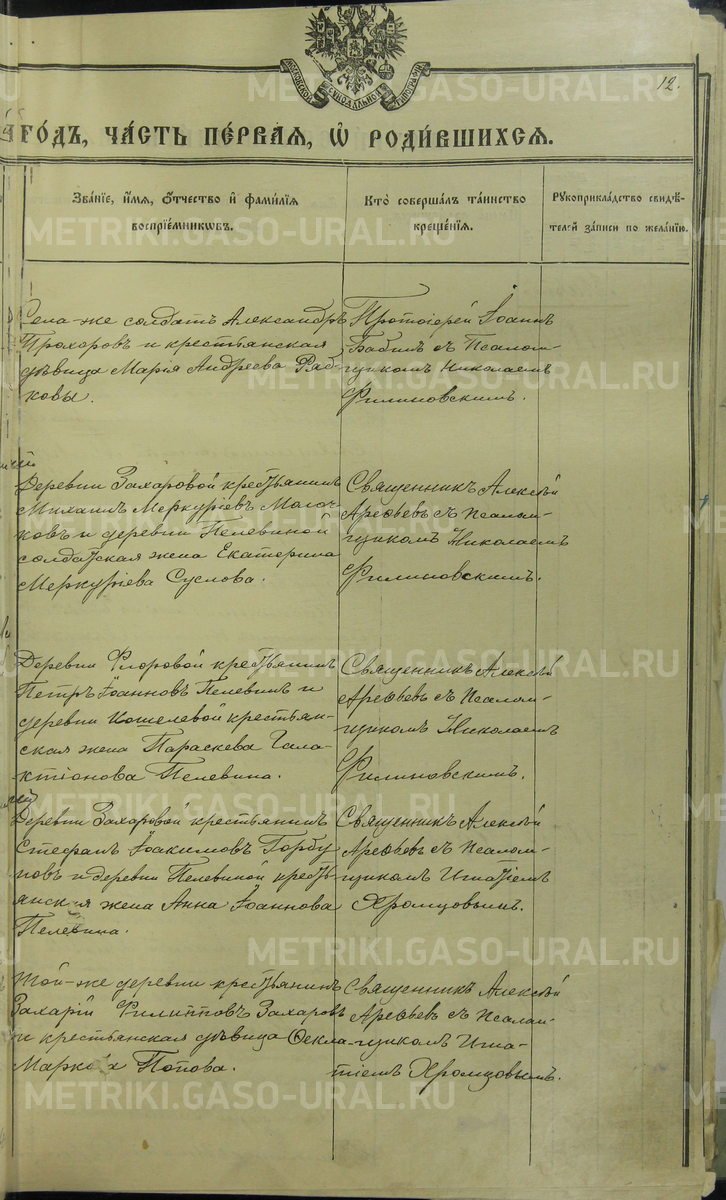 МОСКОВСКОЙ СУНОДАЛЬНОЙ ТИПОГРАФІИ
12.
ГО́ДЪ, ЧА́СТЬ ПЕ́РВАЯ, Ѽ РОДИ́ВШИХСЯ.
Зва́нїе, и́мѧ, ѻ҆́тчество и҆ фами́лїѧ
воспрїе́мниковъ.
Кто̀ соверша́лъ та́инство
креще́нїѧ.
Рꙋкоприкла́дство свидѣ́-
телей за́писи по жела́нїю.
Села-же солдатъ Александръ
Прохоровъ и крестьянская
дѣвица Марія Андреева Ряб
ковы.
Протоіерей Іоаннъ
Бабинъ съ Псалом-
щикомъ Николаемъ
Филиновскимъ.
Деревни Захаровой крестьянинъ
Михаилъ Меркуріевъ
ковъ и деревни Пелевиной
солдатская жена Екатерина
Меркуріева Суслова.
Священникъ Алексѣй
Арефьевъ съ Псалом-
щикомъ Николаемъ
Филиновскимъ.
Деревни Флоровой крестьянинъ
Петръ Іоанновъ Пелевинъ и
деревни Кошелевой крестьян-
ская жена Параскева Гала-
ктіонова Пелевина.
Священникъ Алексѣй
Арефьевъ съ Псалом-
щикомъ Николаемъ
Филиновскимъ.
Деревни Захаровой крестьянинъ
Стефанъ Іоакимовъ Горбу
новъ и деревни Пелевиной кресть-
янская жена Анна Іоаннова
Пелевина.
Священникъ Алексѣй
Арефьевъ съ Псалом-
щикомъ Игнатіемъ
Хромцовымъ.
Той-же деревни крестьянинъ
Захарій Филипповъ Захаровъ
и крестьянская дѣвица Ѳекла
Маркова Попова.
Священникъ Алексѣй
Арефьевъ съ Псалом-
щикомъ Игна-
тіемъ Хромцовымъ.
METRIKI.GASO-URAL.RU